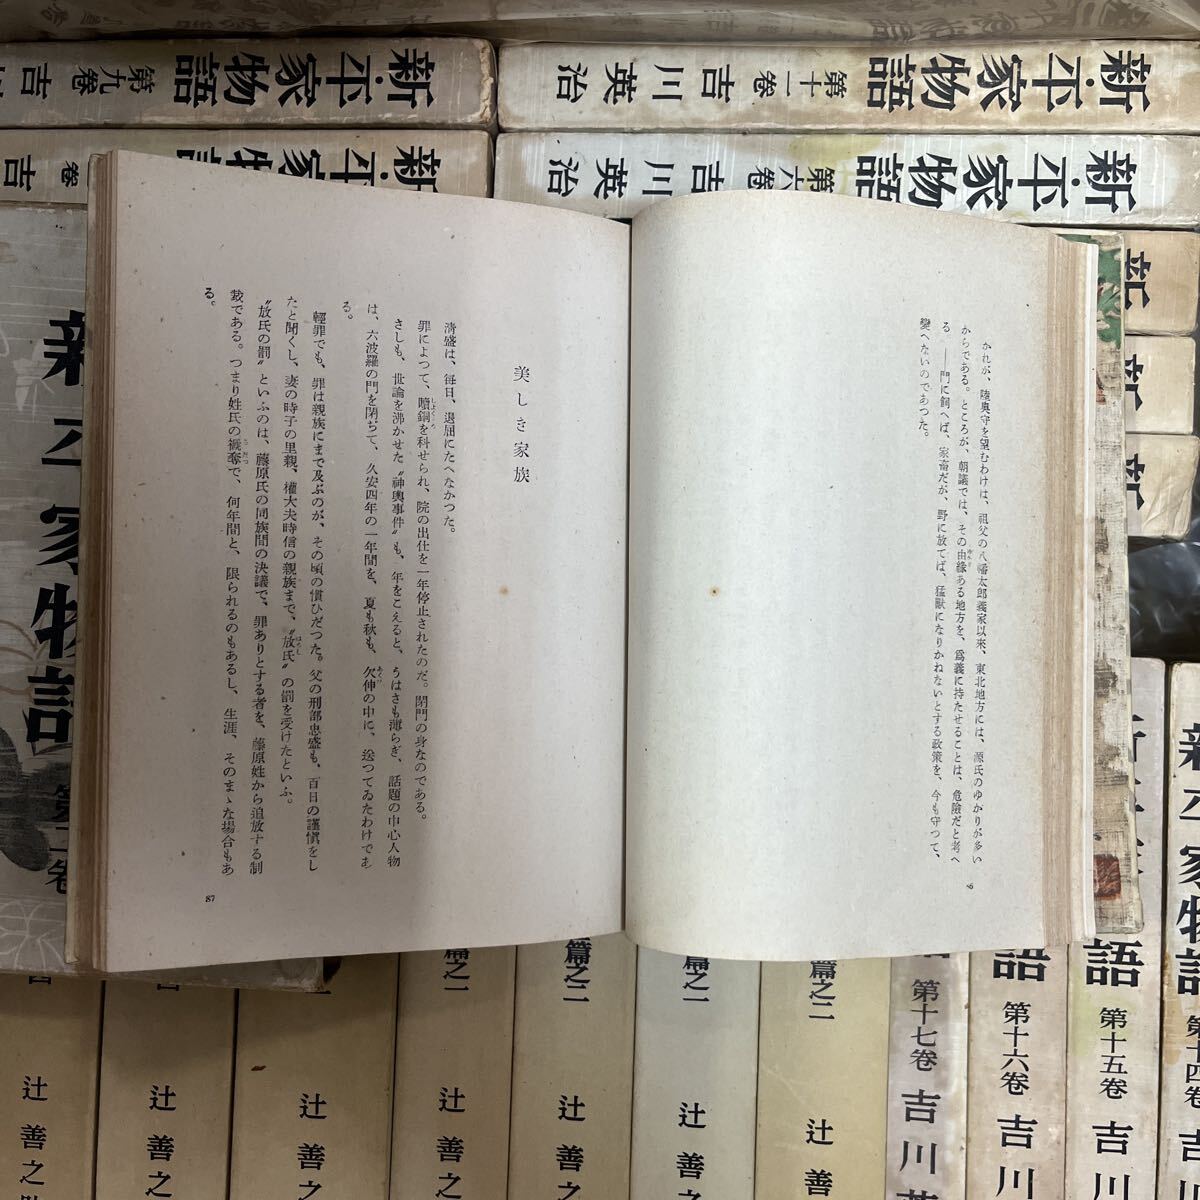 新・平家物語 第九卷 吉
新・平家物語 第十一卷 吉川英治
新・平家物語 卷 吉
新・平家物語 第六卷 吉川英治
かれが、陸奥守を望むわけは、祖父の八幡太郎義家以來、東北地方には、源氏のゆかりが多い
からである。ところが、朝議では、その由緣ある地方を、爲義に持たせることは、危險だと考へ
る――門に飼へば、家畜だが、野に放てば、猛獸になりかねないとする政策を、今も守つて、
變へないのであつた。
86
美しき家族
淸盛は、每日、退屈にたへなかつた。
罪によつて、贖銅を科せられ、院の出仕を一年停止されたのだ。閉門の身なのである。
さしも、世論を沸かせた〝神輿事件〟も、年をこえると、うはさも薄らぎ、話題の中心人物
は、六波羅の門を閉ぢて、久安四年の一年間を、夏も秋も、欠伸の中に、送つてゐたわけであ
る。
輕罪でも、罪は親族にまで及ぶのが、その頃の慣ひだつた。父の刑部忠盛も、百日の謹愼をし
たと聞くし、妻の時子の里親、權大夫時信の親族まで、〝放氏〟の罰を受けたといふ。
〝放氏の罰〟といふのは、藤原氏の同族間の決議で、罪ありとする者を、藤原姓から追放する制
裁である。つまり姓氏の褫奪で、何年間と、限られるのもあるし、生涯、そのまゝな場合もあ
る。
87
新・平家物語
新
新
新
語 第十七卷 吉川英
語 第十六卷 吉川
語 第十五卷 吉川
新・平家物語 第十四卷 吉川
篇之二 辻善之
篇之三 辻善之
篇之二 辻善之
篇之一 辻善之
辻善之
辻善之
辻善之助